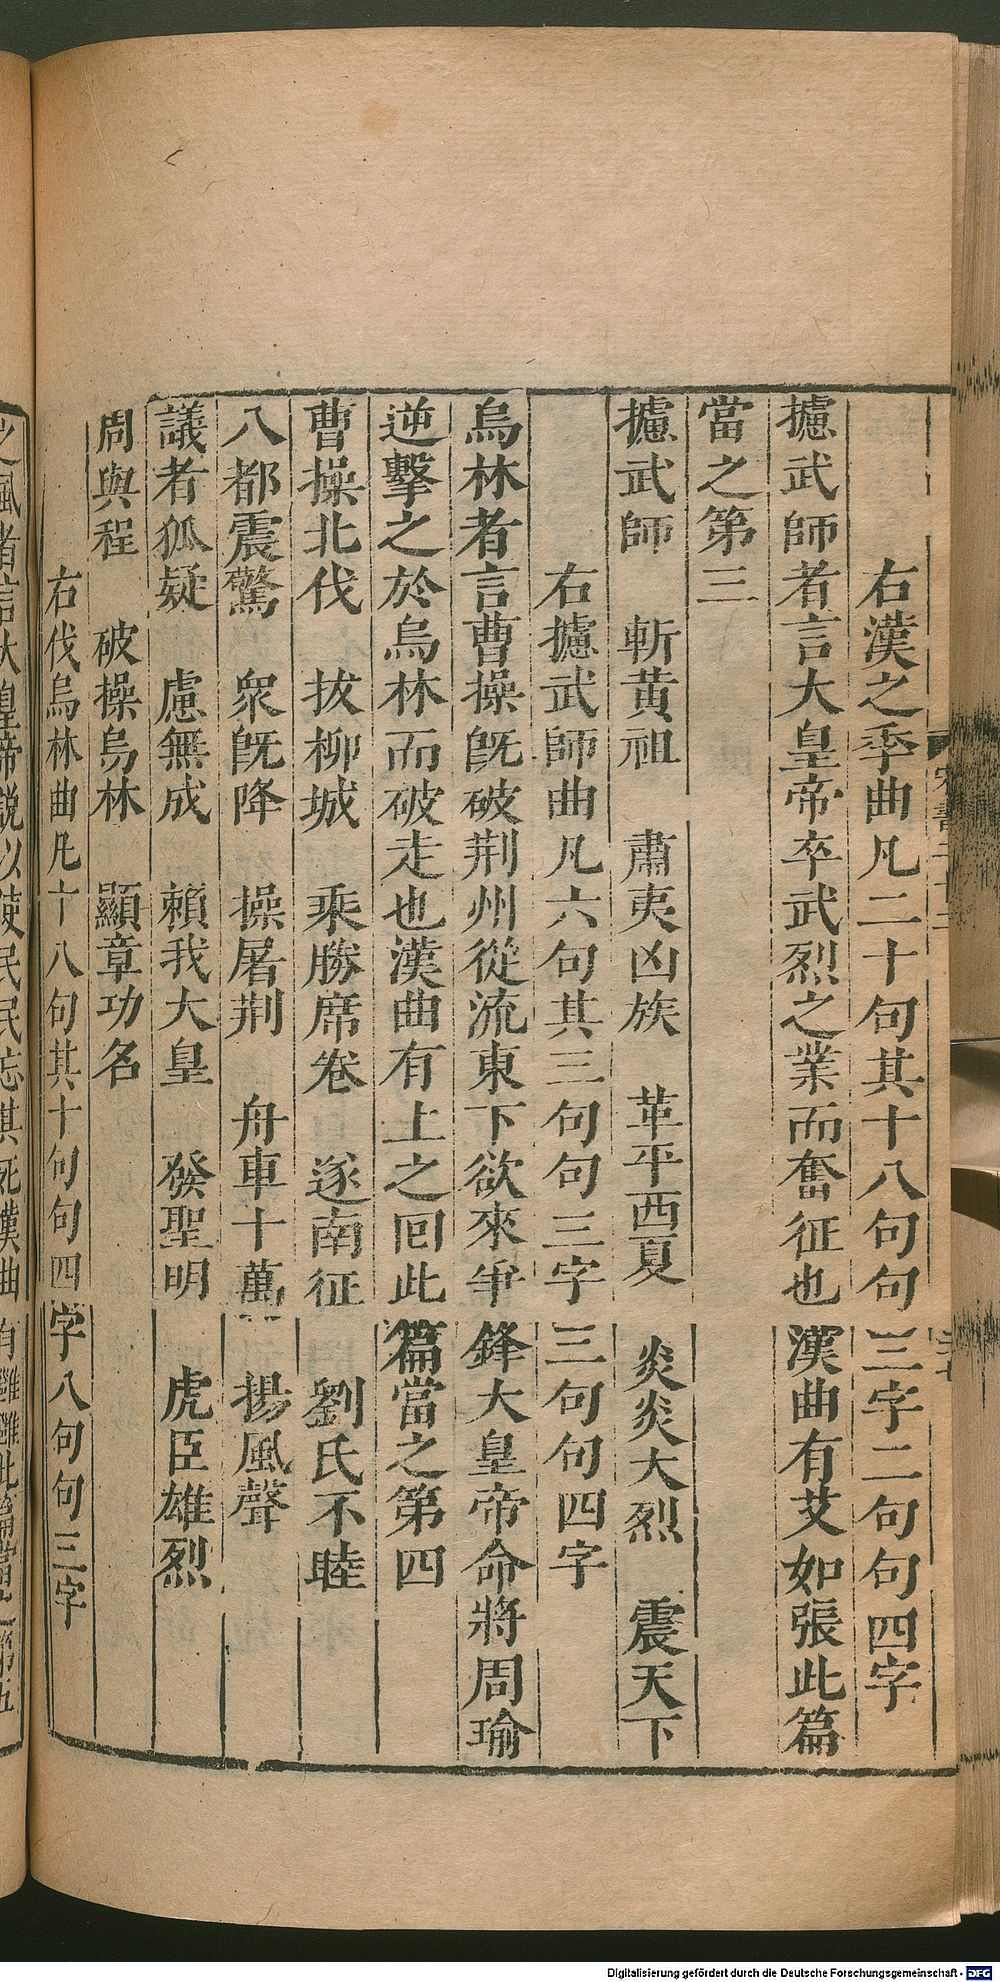 右漢之季曲凡二十句其十八句句三字二句句四字
攄武師者言大皇帝卒武烈之業而奮征也漢曲有艾如張此篇
當之第三
攄武師　斬黄祖　肅夷凶族　革平西夏　炎炎大烈　震天下
右攄武師曲凡六句其三句句三字三句句四字
烏林者言曹操旣破荆州從流東下欲來爭鋒大皇帝命將周瑜
逆擊之於烏林而破走也漢曲有上之回此篇當之第四
曹操北伐　拔柳城　乘勝席卷　遂南征　劉氏不睦
八都震驚　衆旣降　操屠荆　舟車十萬　揚風聲
議者狐疑　慮無成　賴我大皇　發聖明　虎臣雄烈
周與程　破操烏林　顯章功名
右伐烏林曲凡十八句其十句句四字八句句三字
之風者言大皇帝説以使民民忘其死漢曲有雝離此篇當之第五
Digitalisierung gefördert durch die Deutsche Forschungsgemeinschaft - DFG